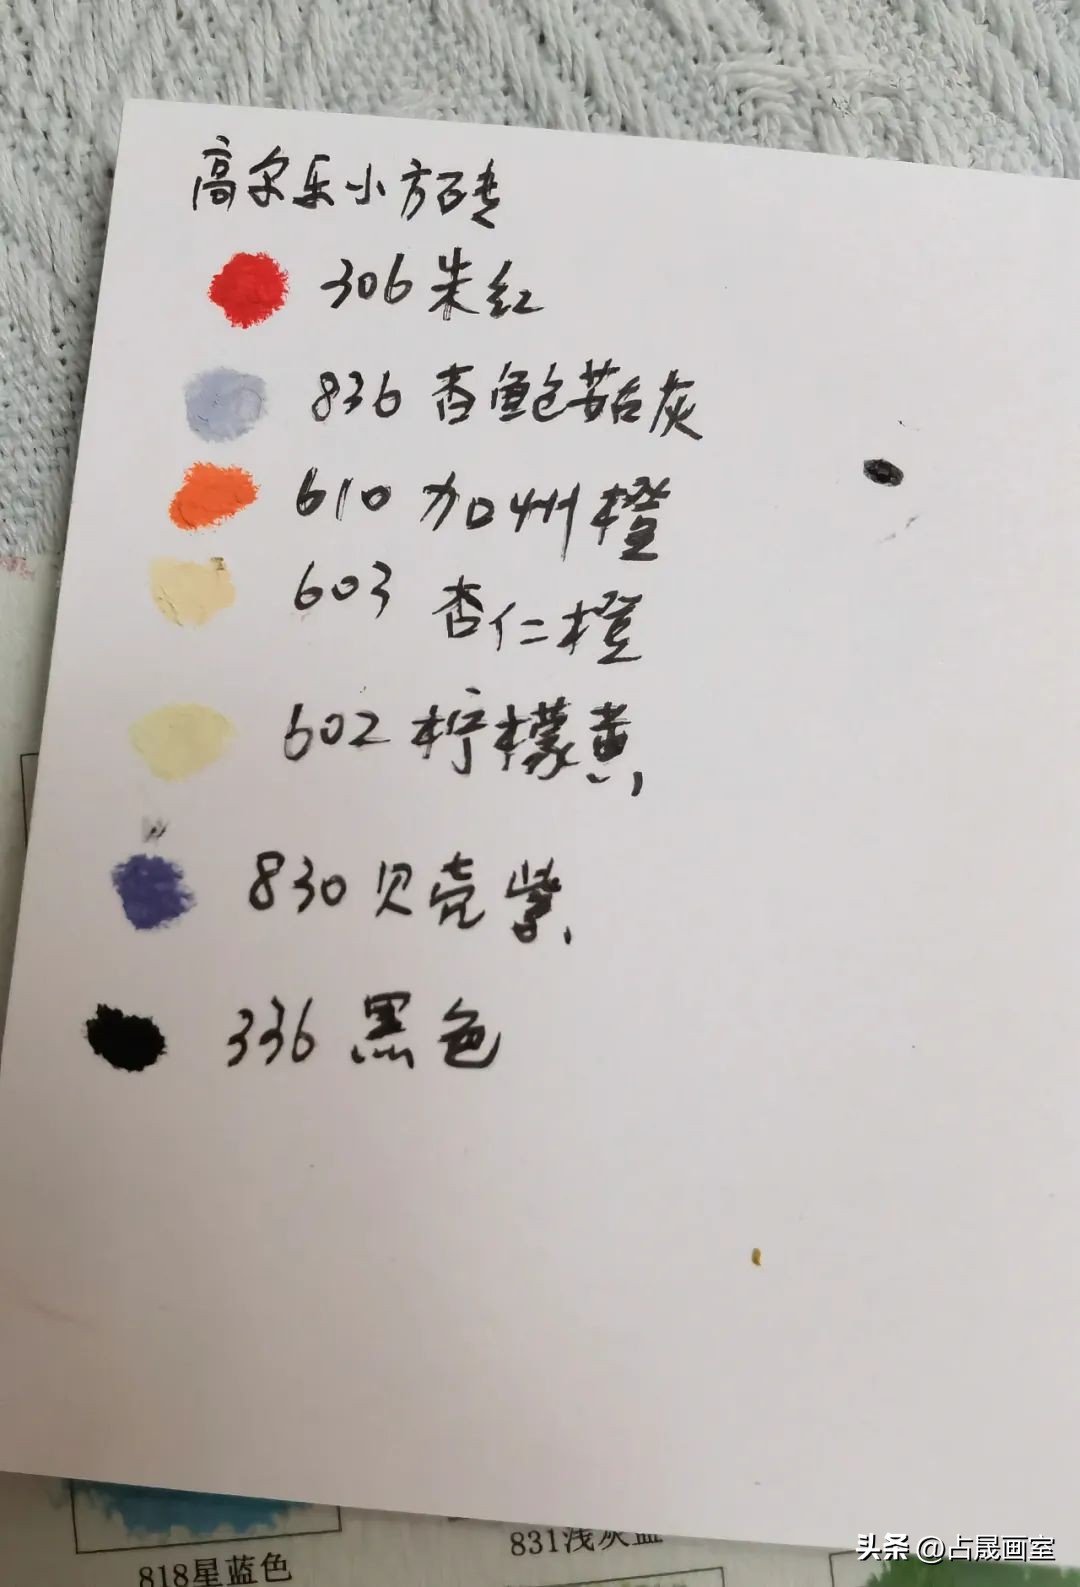 高尔乐小方砖
306 朱红
836 杏鲍菇灰
610 加州橙
603 杏仁橙
602 柠檬黄
830 贝壳紫
336 黑色
818星蓝色
831浅灰蓝
头条 @占晟画室